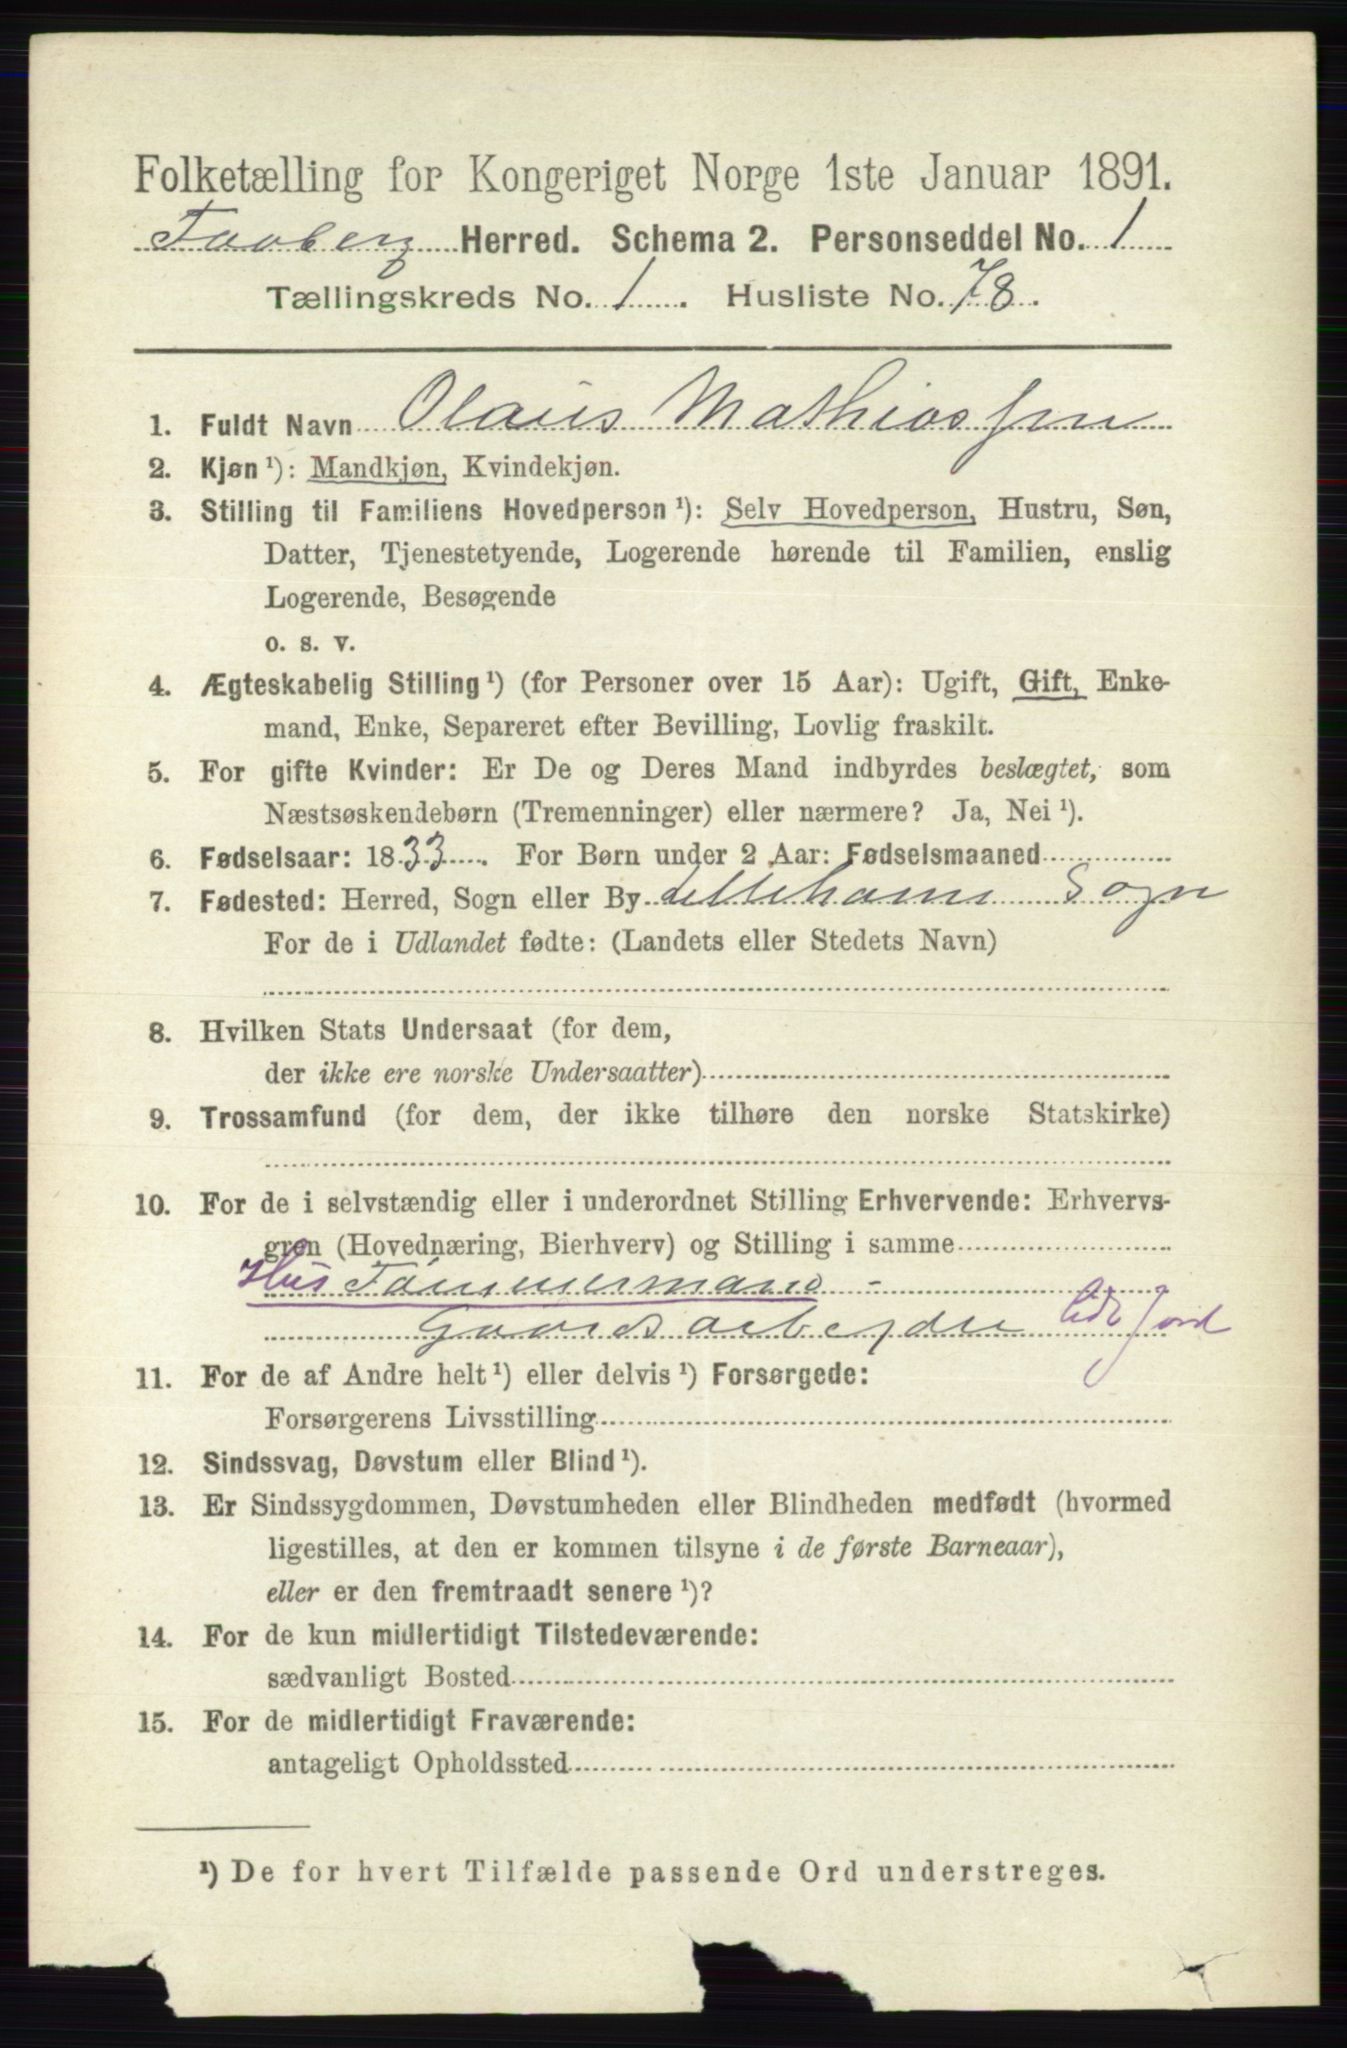 Folketælling for Kongeriget Norge 1ste Januar 1891.
Faaberg Herred. Schema 2. Personseddel No. 1
Tællingskreds No. 1. Husliste No. 78.
1. Fuldt Navn Olaus Mathiassen
2. Kjøn ¹): Mandkjøn, Kvindekjøn.
3. Stilling til Familiens Hovedperson ¹): Selv Hovedperson, Hustru, Søn,
Datter, Tjenestetyende, Logerende hørende til Familien, enslig
Logerende, Besøgende
o. s. v.
4. Ægteskabelig Stilling ¹) (for Personer over 15 Aar): Ugift, Gift, Enke-
mand, Enke, Separeret efter Bevilling, Lovlig fraskilt.
5. For gifte Kvinder: Er De og Deres Mand indbyrdes beslægtet, som
Næstsøskendebørn (Tremenninger) eller nærmere? Ja, Nei ¹).
6. Fødselsaar: 1833. For Børn under 2 Aar: Fødselsmaaned
7. Fødested: Herred, Sogn eller By Lillehamr Sogn
For de i Udlandet fødte: (Landets eller Stedets Navn)
8. Hvilken Stats Undersaat (for dem,
der ikke ere norske Undersaatter)
9. Trossamfund (for dem, der ikke tilhøre den norske Statskirke)
10. For de i selvstændig eller i underordnet Stilling Erhvervende: Erhvervs-
gren (Hovednæring, Bierhverv) og Stilling i samme
Hus Tømmermand -
Gaardsarbejder lidt Jord
11. For de af Andre helt ¹) eller delvis ¹) Forsørgede:
Forsørgerens Livsstilling
12. Sindssvag, Døvstum eller Blind ¹).
13. Er Sindssygdommen, Døvstumheden eller Blindheden medfødt (hvormed
ligestilles, at den er kommen tilsyne i de første Barneaar),
eller er den fremtraadt senere ¹)?
14. For de kun midlertidigt Tilstedeværende:
sædvanligt Bosted
15. For de midlertidigt Fraværende:
antageligt Opholdssted
¹) De for hvert Tilfælde passende Ord understreges.